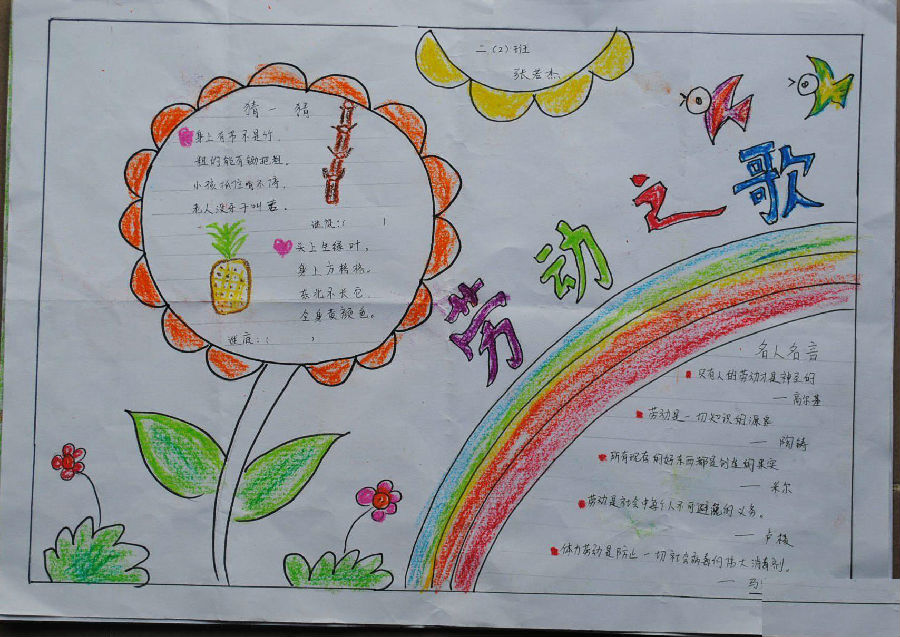 二（2）班
张若杰
劳动之歌
猜一猜
身上有节不是竹，
粗的能有锄把粗。
小孩抓住啃不停，
老人没牙干叫苦。
谜底：（ ）
头上生绿叶，
身上方转格。
东北不长它，
全身黄颜色。
谜底：（ ）
名人名言
只有人的劳动才是神圣的
—高尔基
劳动是一切知识的源泉
— 陶铸
所有现存的好东西都是创造的果实
— 米尔
劳动是社会中每个人不可避免的义务。
— 卢梭
体力劳动是防止一切社会病毒的伟大消毒剂。